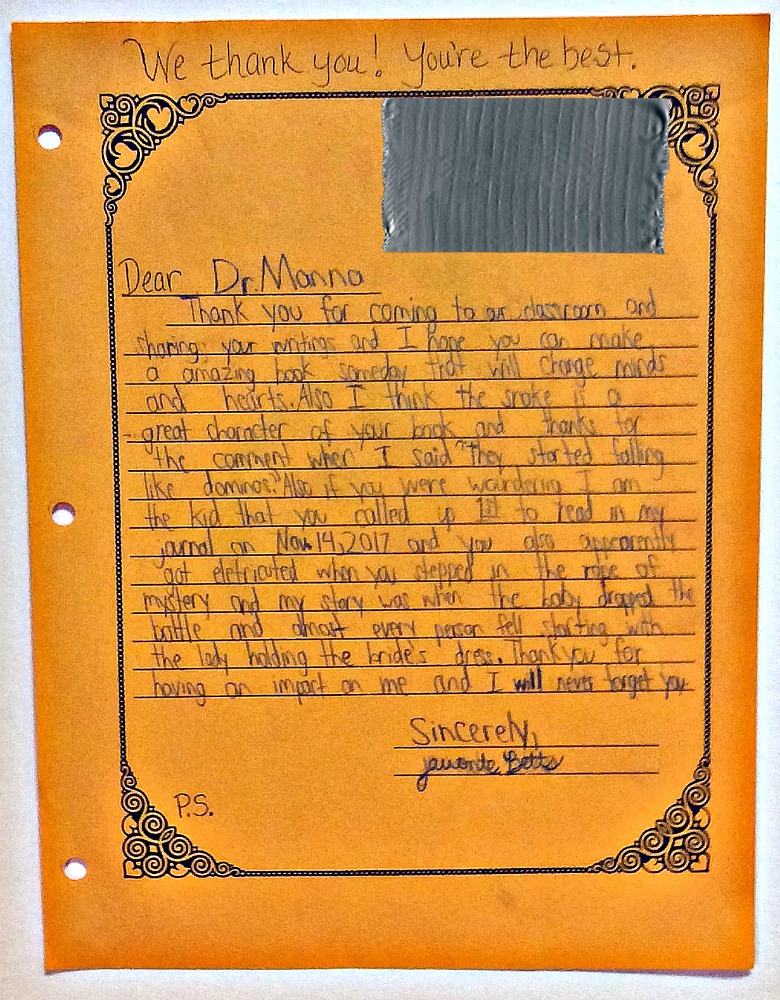 We thank you! You're the best.
Dear Dr. Manna
Thank you for coming to our classroom and
sharing your writings and I hope you can make
a amazing book someday that will change minds
and hearts. Also I think the snake is a
great character of your book and thanks for
the comment when I said "They started falling
like dominos." Also if you were wondering I am
the kid that you called up 1st to read in my
journal on Nov. 14, 2017 and you also apperently
got eletricuted when you stepped in the rope of
mystery and my story was when the baby dropped the
bottle and almost every person fell starting with
the lady holding the bride's dress. Thank you for
having an impact on me and I will never forget you
Sincerely,
Betts
P.S.